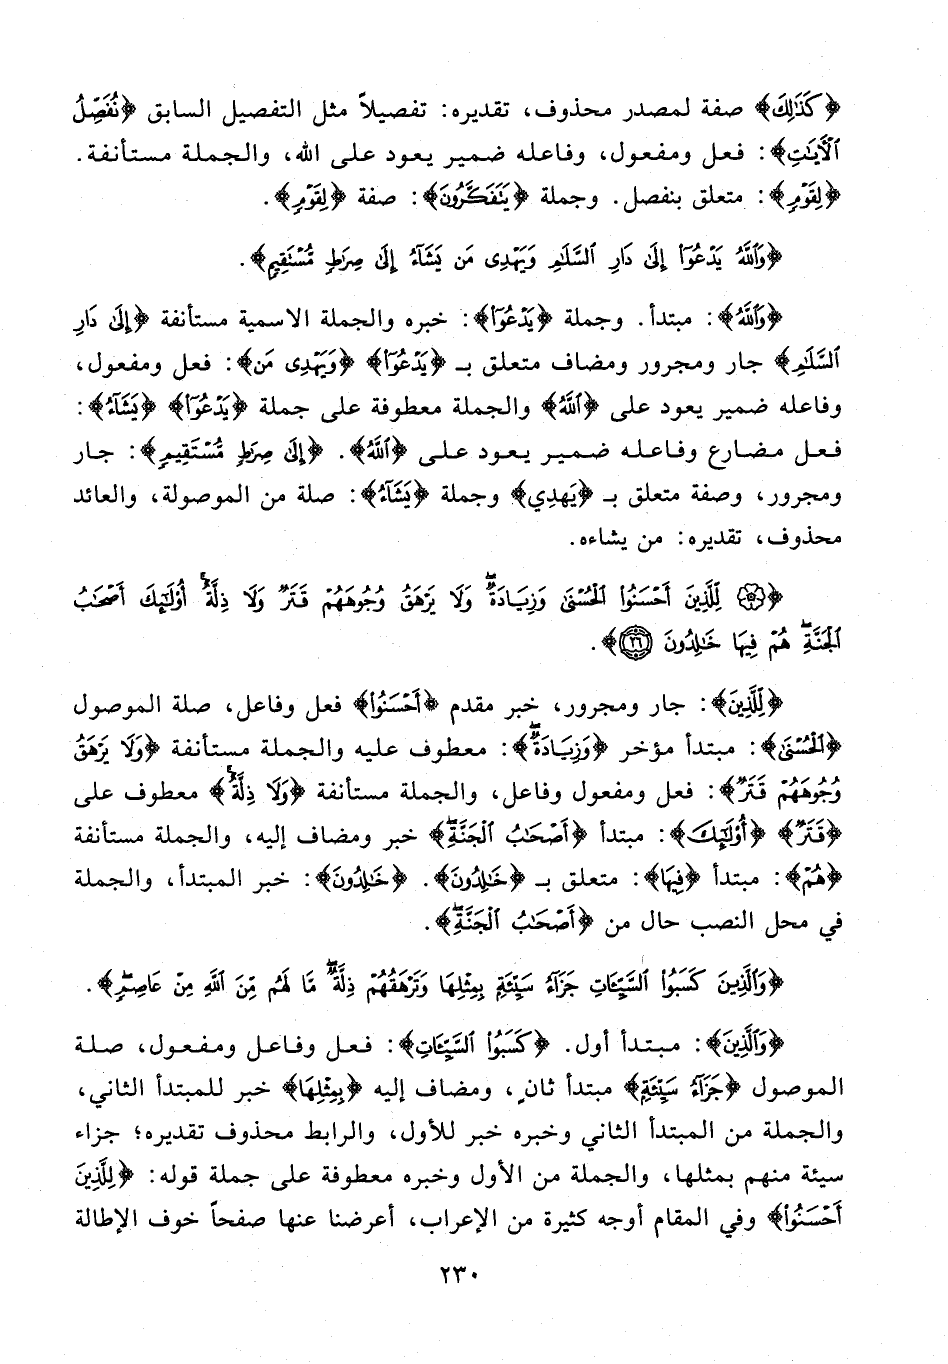 ﴿كَذَٰلِكَ﴾ صفة لمصدر محذوف، تقديره: تفصيلاً مثل التفصيل السابق ﴿نُفَصِّلُ
ٱلْأَيَٰتِ﴾: فعل ومفعول، وفاعله ضمير يعود على الله، والجملة مستأنفة.
﴿لِقَوْمٍ﴾: متعلق بنفصل. وجملة ﴿يَتَفَكَّرُونَ﴾: صفة ﴿لِقَوْمٍ﴾.
﴿وَٱللَّهُ يَدْعُوٓا۟ إِلَىٰ دَارِ ٱلسَّلَٰمِ وَيَهْدِى مَن يَشَآءُ إِلَىٰ صِرَٰطٍ مُّسْتَقِيمٍ﴾.
﴿وَٱللَّهُ﴾: مبتدأ. وجملة ﴿يَدْعُوٓا۟﴾: خبره والجملة الاسمية مستأنفة ﴿إِلَىٰ دَارِ
ٱلسَّلَٰمِ﴾ جار ومجرور ومضاف متعلق بـ ﴿يَدْعُوٓا۟﴾ ﴿وَيَهْدِى مَن﴾: فعل ومفعول،
وفاعله ضمير يعود على ﴿ٱللَّهُ﴾ والجملة معطوفة على جملة ﴿يَدْعُوٓا۟﴾ ﴿يَشَآءُ﴾:
فعل مضارع وفاعله ضمير يعود على ﴿ٱللَّهُ﴾. ﴿إِلَىٰ صِرَٰطٍ مُّسْتَقِيمٍ﴾: جار
ومجرور، وصفة متعلق بـ ﴿يَهدِي﴾ وجملة ﴿يَشَآءُ﴾: صلة من الموصولة، والعائد
محذوف، تقديره: من يشاءه.
﴿۞ لِّلَّذِينَ أَحْسَنُوا۟ ٱلْحُسْنَىٰ وَزِيَادَةٌ ۖ وَلَا يَرْهَقُ وُجُوهَهُمْ قَتَرٌ وَلَا ذِلَّةٌ ۚ أُو۟لَٰٓئِكَ أَصْحَٰبُ
ٱلْجَنَّةِ ۖ هُمْ فِيهَا خَٰلِدُونَ ٢٦﴾.
﴿لِّلَّذِينَ﴾: جار ومجرور، خبر مقدم ﴿أَحْسَنُوا۟﴾ فعل وفاعل، صلة الموصول
﴿ٱلْحُسْنَىٰ﴾: مبتدأ مؤخر ﴿وَزِيَادَةٌ ۖ﴾: معطوف عليه والجملة مستأنفة ﴿وَلَا يَرْهَقُ
وُجُوهَهُمْ قَتَرٌ﴾: فعل ومفعول وفاعل، والجملة مستأنفة ﴿وَلَا ذِلَّةٌ ۚ﴾ معطوف على
﴿قَتَرٌ﴾ ﴿أُو۟لَٰٓئِكَ﴾: مبتدأ ﴿أَصْحَٰبُ ٱلْجَنَّةِ ۖ﴾ خبر ومضاف إليه، والجملة مستأنفة
﴿هُمْ﴾: مبتدأ ﴿فِيهَا﴾: متعلق بـ ﴿خَٰلِدُونَ﴾. ﴿خَٰلِدُونَ﴾: خبر المبتدأ، والجملة
في محل النصب حال من ﴿أَصْحَٰبُ ٱلْجَنَّةِ ۖ﴾.
﴿وَٱلَّذِينَ كَسَبُوا۟ ٱلسَّيِّـَٔاتِ جَزَآءُ سَيِّئَةٍۭ بِمِثْلِهَا وَتَرْهَقُهُمْ ذِلَّةٌ ۖ مَّا لَهُم مِّنَ ٱللَّهِ مِنْ عَاصِمٍ ۖ﴾.
﴿وَٱلَّذِينَ﴾: مبتدأ أول. ﴿كَسَبُوا۟ ٱلسَّيِّـَٔاتِ﴾: فعل وفاعل ومفعول، صلة
الموصول ﴿جَزَآءُ سَيِّئَةٍ﴾ مبتدأ ثانٍ، ومضاف إليه ﴿بِمِثْلِهَا﴾ خبر للمبتدأ الثاني،
والجملة من المبتدأ الثاني وخبره خبر للأول، والرابط محذوف تقديره؛ جزاء
سيئة منهم بمثلها، والجملة من الأول وخبره معطوفة على جملة قوله: ﴿لِّلَّذِينَ
أَحْسَنُوا۟﴾ وفي المقام أوجه كثيرة من الإعراب، أعرضنا عنها صفحاً خوف الإطالة
٢٣٠